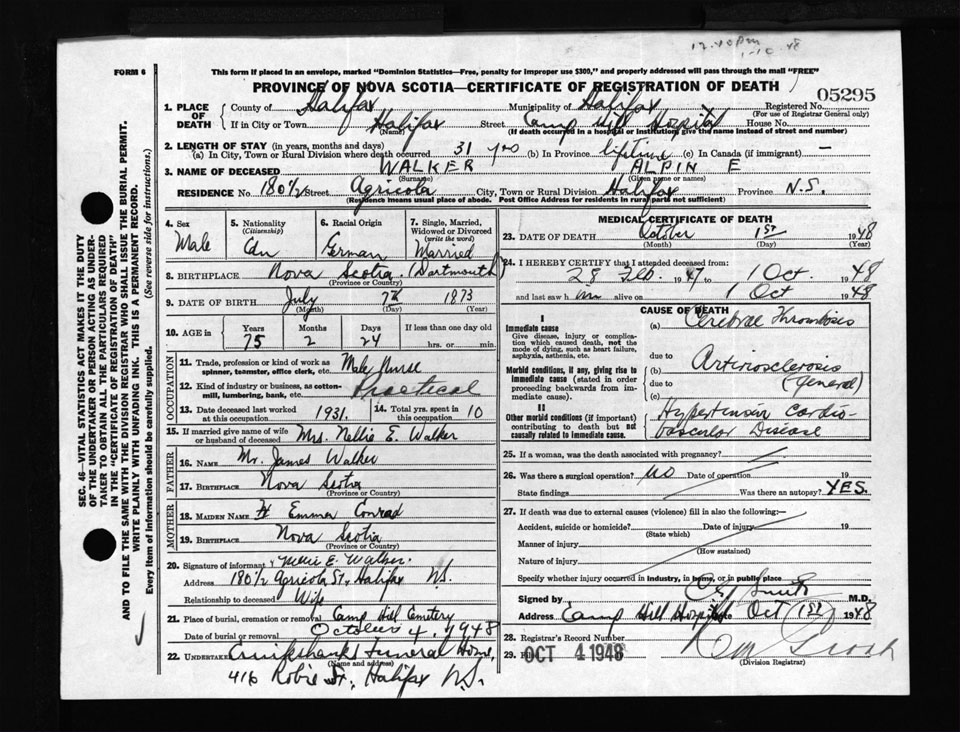 12.40 pm
1-10-48
FORM 6
This form if placed in an envelope, marked "Dominion Statistics—Free, penalty for improper use $300," and properly addressed will pass through the mail "FREE"
PROVINCE OF NOVA SCOTIA—CERTIFICATE OF REGISTRATION OF DEATH
05295
1. PLACE OF DEATH County of Halifax Municipality of Halifax Registered No.
(For use of Registrar General only)
If in City or Town Halifax Street Camp Hill Hospital House No.
(Name) (If death occurred in a hospital or institution, give the name instead of street and number)
2. LENGTH OF STAY (in years, months and days)
(a) In City, Town or Rural Division where death occurred 31 yrs (b) In Province lifetime (c) In Canada (if immigrant) —
3. NAME OF DECEASED WALKER ALPIN E
(Surname) (Given name or names)
RESIDENCE No. 180½ Street Agricola City, Town or Rural Division Halifax Province N.S.
(Residence means usual place of abode. Post Office Address for residents in rural parts not sufficient)
4. Sex Male
5. Nationality (Citizenship) Cdn
6. Racial Origin German
7. Single, Married, Widowed or Divorced (write the word) Married
8. BIRTHPLACE Nova Scotia (Dartmouth)
(Province or Country)
9. DATE OF BIRTH July 7th 1873
(Month) (Day) (Year)
10. AGE in Years Months Days If less than one day old
75 2 24 hrs. or min.
OCCUPATION
11. Trade, profession or kind of work as spinner, teamster, office clerk, etc. Male Nurse
12. Kind of industry or business, as cotton-mill, lumbering, bank, etc. Practical
13. Date deceased last worked at this occupation 1931. 14. Total yrs. spent in this occupation 10
15. If married give name of wife or husband of deceased Mrs. Nellie E. Walker
FATHER
16. NAME Mr. James Walker
17. BIRTHPLACE Nova Scotia
(Province or Country)
MOTHER
18. MAIDEN NAME Emmer Conrad
19. BIRTHPLACE Nova Scotia
(Province or Country)
20. Signature of informant Nellie E. Walker.
Address 180½ Agricola St., Halifax N.S.
Relationship to deceased Wife
21. Place of burial, cremation or removal Camp Hill Cemetery
Date of burial or removal October 4, 1948
22. UNDERTAKER Cruikshank's Funeral Home,
(Name and address)
416 Robie St., Halifax N.S.
MEDICAL CERTIFICATE OF DEATH
23. DATE OF DEATH October 1st 1948
(Month) (Day) (Year)
24. I HEREBY CERTIFY that I attended deceased from:
28 Feb. 1947 to 1 Oct. 1948
and last saw him alive on 1 Oct 1948
CAUSE OF DEATH
I
Immediate cause
Give disease, injury or complication which caused death, not the mode of dying, such as heart failure, asphyxia, asthenia, etc.
(a) Cerebral Thrombosis
due to
Morbid conditions, if any, giving rise to immediate cause (stated in order proceeding backwards from immediate cause).
(b) Arteriosclerosis
due to (General)
(c)
II
Other morbid conditions (if important) contributing to death but not causally related to immediate cause.
Hypertensive Cardio-
vascular Disease
25. If a woman, was the death associated with pregnancy?
26. Was there a surgical operation? No Date of operation 19
State findings Was there an autopsy? YES.
27. If death was due to external causes (violence) fill in also the following:—
Accident, suicide or homicide? Date of injury 19
(State which)
Manner of injury
(How sustained)
Nature of injury
Specify whether injury occurred in industry, in home, or in public place
Signed by Smith M.D.
Address Camp Hill Hospital Date Oct 1st 1948
28. Registrar's Record Number
29. Filed OCT 4 1948
(Division Registrar)
SEC. 46—VITAL STATISTICS ACT MAKES IT THE DUTY
OF THE UNDERTAKER OR PERSON ACTING AS UNDER-
TAKER TO OBTAIN ALL THE PARTICULARS REQUIRED
IN THE "CERTIFICATE OF REGISTRATION OF DEATH"
AND TO FILE THE SAME WITH THE DIVISION REGISTRAR WHO SHALL ISSUE THE BURIAL PERMIT.
WRITE PLAINLY WITH UNFADING INK. THIS IS A PERMANENT RECORD.
Every item of information should be carefully supplied. (See reverse side for instructions.)